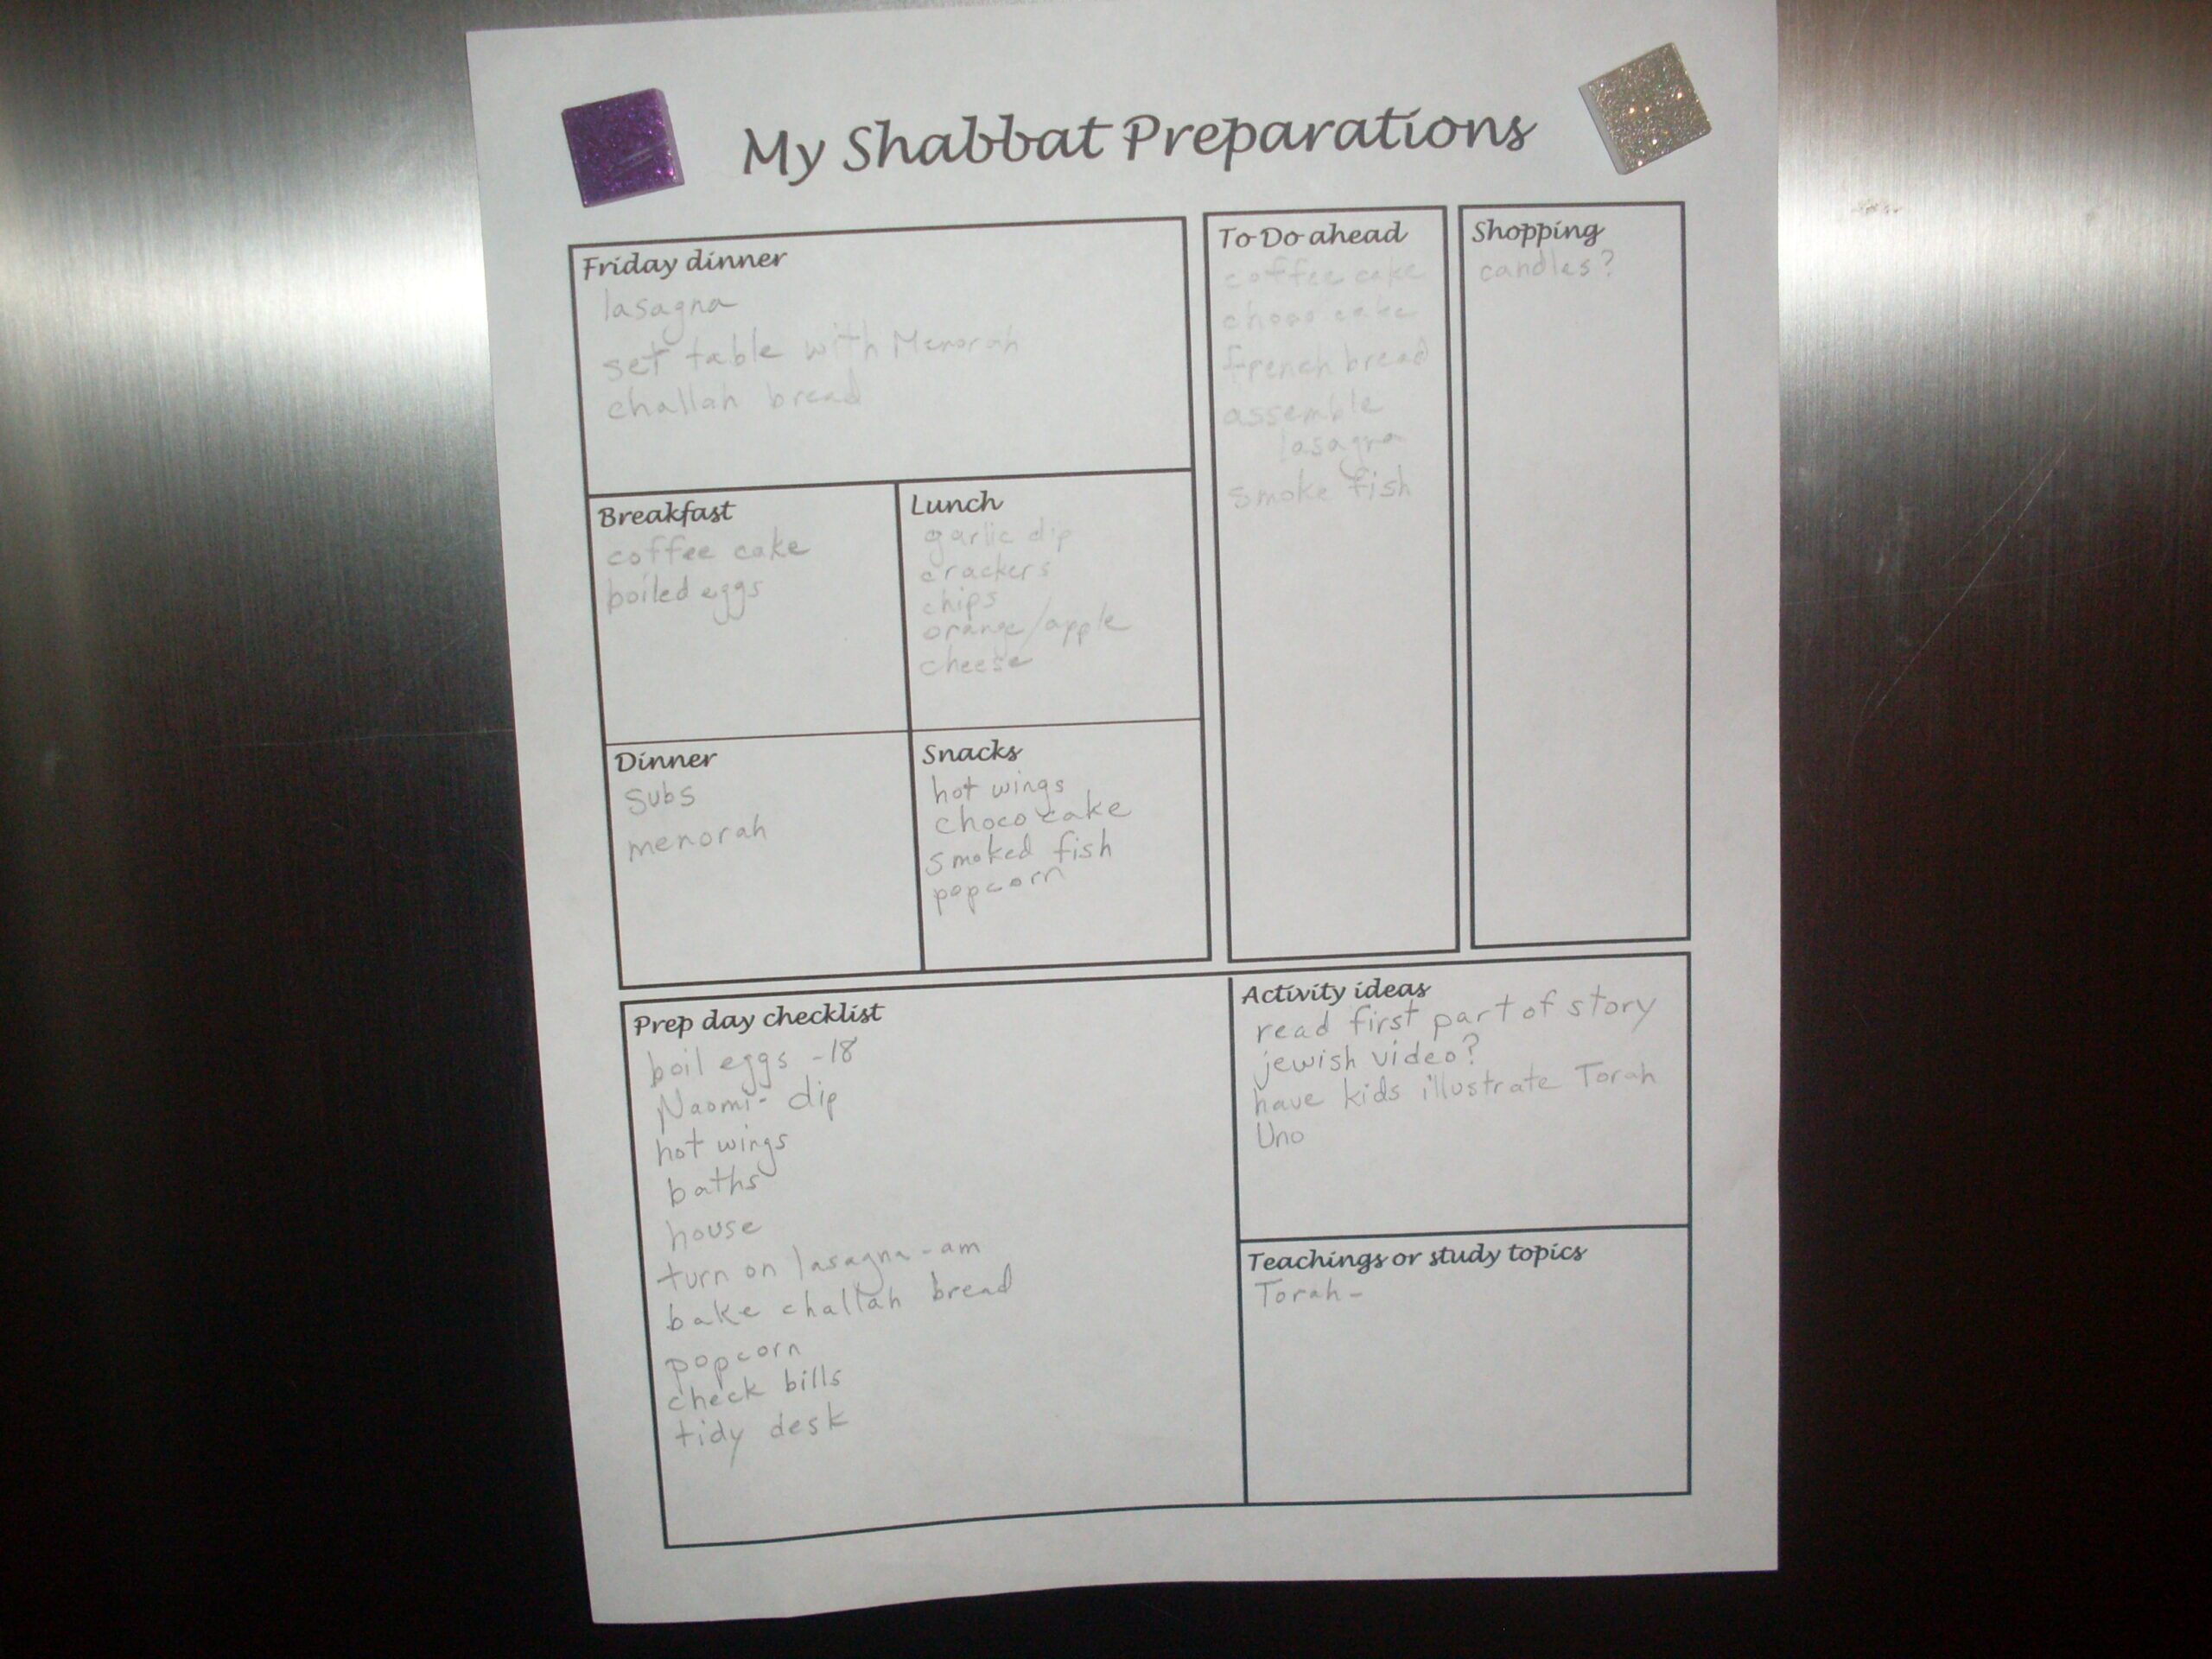 My Shabbat Preparations
Friday dinner
lasagna
set table with Menorah
challah bread
Breakfast
coffee cake
boiled eggs
Lunch
garlic dip
crackers
chips
orange/apple
cheese
Dinner
subs
menorah
Snacks
hot wings
choco cake
smoked fish
popcorn
To Do ahead
coffee cake
choco cake
french bread
assemble
lasagna
smoke fish
Shopping
candles?
Prep day checklist
boil eggs -18
Naomi- dip
hot wings
baths
house
turn on lasagna - am
bake challah bread
popcorn
check bills
tidy desk
Activity ideas
read first part of story
jewish video?
have kids illustrate Torah
Uno
Teachings or study topics
Torah -